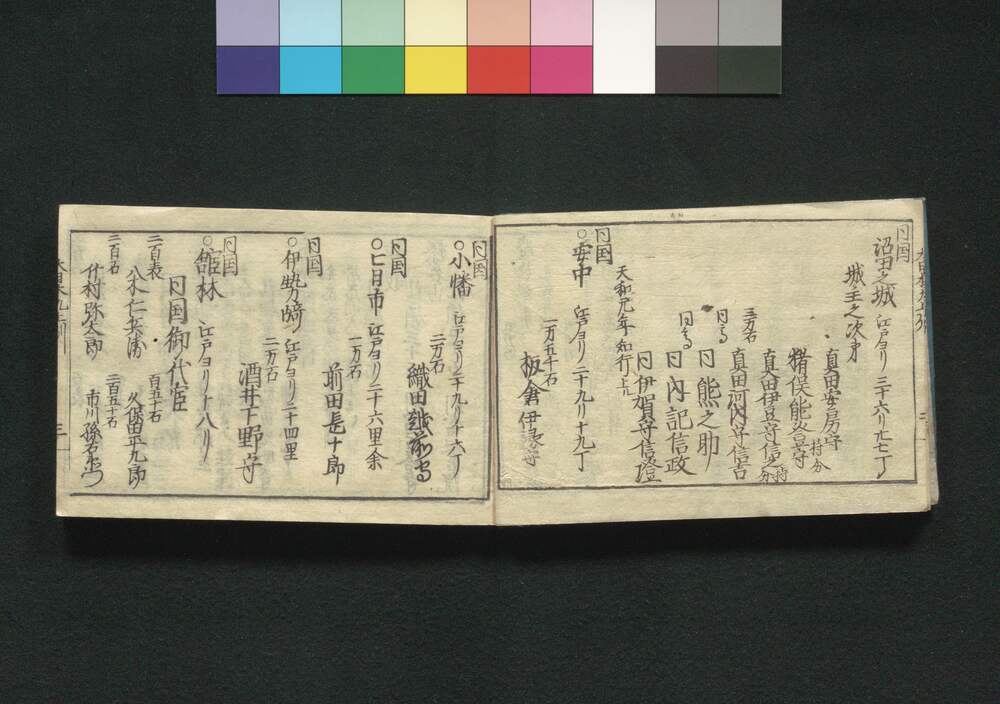 同国
沼田之城 江戸ヨリ 三十六り九七丁
城主之次第
真田安房守
猪俣能登守 持分
真田伊豆守信之 持分
三万石
真田河内守信吉
同高
同 熊之助
同高
同 内記信政
同 伊賀守信澄
天和元年知行上ル
同国
○安中 江戸ヨリ 二十九り十九丁
一万五千石
板倉伊予守
同国
○小幡 江戸ヨリ 二十九り十六丁
二万石
織田越前守
同国
○七日市 江戸ヨリ 二十六里余
一万石
前田長十郎
同国
○伊勢崎 江戸ヨリ 二十四里
二万石
酒井下野守
同国
○館林 江戸ヨリ 十八り
同国御代官
二百表
八木仁兵衛
百五十石
久保田平九郎
二百石
竹村弥太郎
二百五十石
市川孫右衛門